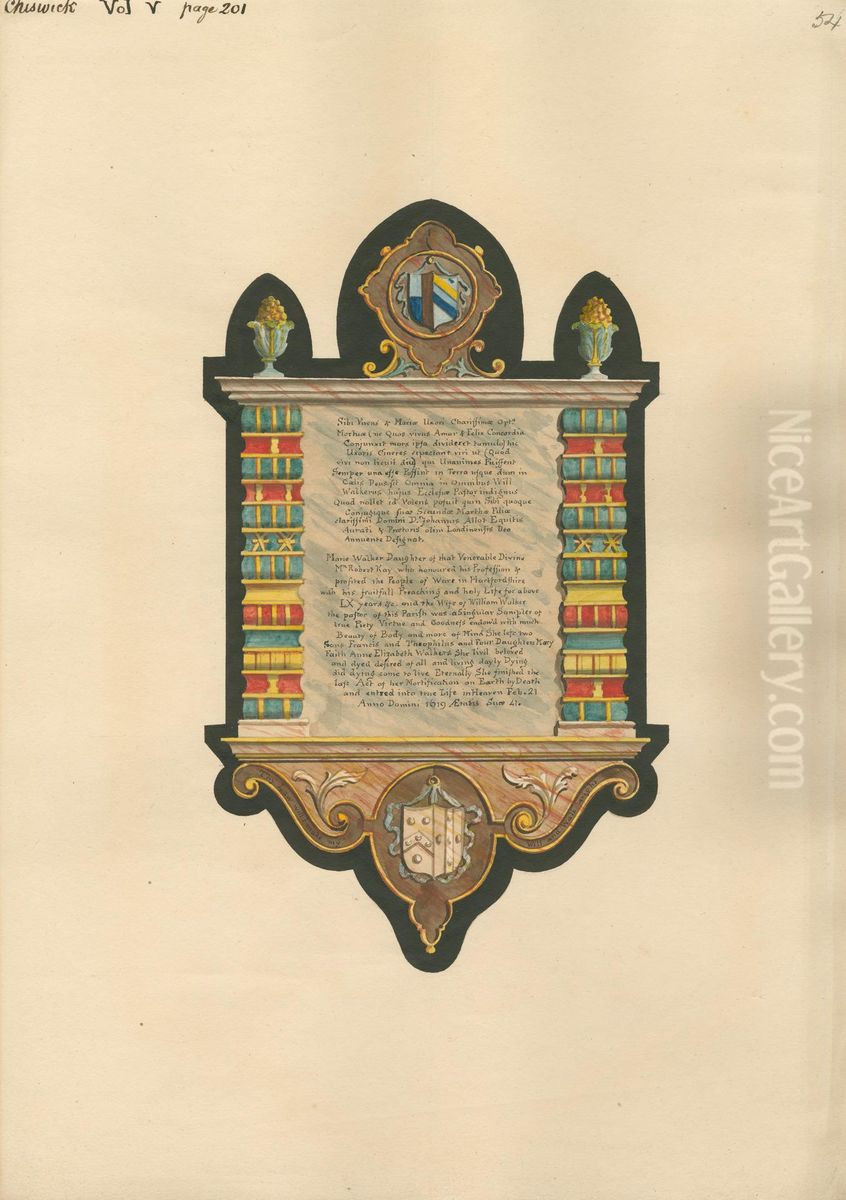 Chiswick Vol V page 201
54
Sibi Vivens & Mariæ Uxori Charissimæ Optᵉ
Mortuæ (ne Quos vivus Amor & Felix Concordia
Conjunxit mors ipsa divideret tumulo) hic
Uxoris Cineres expectant viri ut (Quod
vivi non licuit diu) qui Unanimes Fuissent
Semper una esse Possint in Terra usque dum in
Cœlis Deus sit Omnia in Omnibus Will
Walkerus hujus Ecclesiæ Pastor indignus
Quod nollet id Volens posuit quin Sibi quoque
Conjugique suæ Secundæ Marthæ Filiæ
clarissimi Domini D. Johannis Allot Equitis
Aurati & Prætoris olim Londinensis Deo
Annuente Designat.
Marie Walker Daughter of that Venerable Divine
Mr Robert Kay who honoured his Profession &
profited the People of Ware in Hartfordshire
with his fruitfull Preaching and holy Life for above
LX years &c. and the Wife of William Walker
the pastor of this Parish was a Singular Sampler of
true Piety Virtue and Goodness endow'd with much
Beauty of Body and more of Mind She left two
Sons Francis and Theophilus and Four Daughters Mary
Faith Anne Elizabeth Walkers She livd beloved
and dyed desired of all and living dayly Dying
did dying come to live Eternally She finished the
last Act of her Mortification on Earth by Death
and entred into true Life in Heaven Feb. 21
Anno Domini 1619 Ætatis Suæ 41.
NiceArtGallery.com